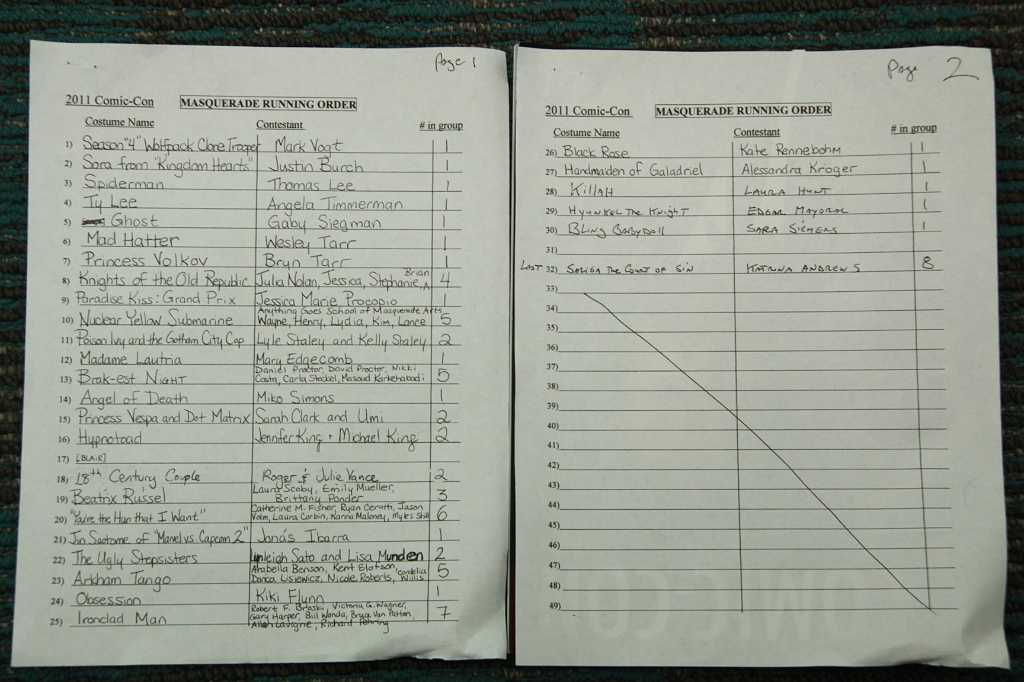 Page 1
2011 Comic-Con MASQUERADE RUNNING ORDER
Costume Name Contestant # in group
1) Season "4" Wolfpack Clone Trooper Mark Vogt 1
2) Sora from "Kingdom Hearts" Justin Burch 1
3) Spiderman Thomas Lee 1
4) Ty Lee Angela Timmerman 1
5) Ghost Gaby Siegman 1
6) Mad Hatter Wesley Tarr 1
7) Princess Volkov Bryn Tarr 1
8) Knights of the Old Republic Julia Nolan, Jessica, Stephanie, Brian 4
9) Paradise Kiss: Grand Prix Jessica Marie Procopio 1
Anything Goes School of Masquerade Arts
10) Nuclear Yellow Submarine Wayne, Henry, Lydia, Kim, Lance 5
11) Poison Ivy and the Gotham City Cop Lyle Staley and Kelly Staley 2
12) Madame Lautria Mary Edgecomb 1
Daniel Proctor, David Proctor, Nikki
13) Brak-est NIGHT Costa, Carla Stockel, Masoud 5
14) Angel of Death Miko Simons 1
15) Princess Vespa and Dot Matrix Sarah Clark and Umi 2
16) Hypnotoad Jennifer King + Michael King 2
17) [BLAIR]
18) 18th Century Couple Roger & Julie Vance 2
Laura Scoby, Emily Mueller,
19) Beatrix Russel Brittany Ponder 3
Catherine M. Fisher, Ryan Jason
20) "You're the Hun that I Want" Laura Corbin, Karina Maloney, Myles 6
21) Jin Saotome of "Marvel vs. Capcom 2" Jonás Ibarra 1
22) The Ugly Stepsisters Lynleigh Sato and Lisa Munden 2
Arabella Benson, Kent Elofson, Cordelia
23) Arkham Tango Danca Lisiewicz, Nicole Roberts, Willis 5
24) Obsession Kiki Flynn 1
Robert F. Victoria G. Wagner,
25) Ironclad Man Gary Harper, Bill Wanda, Bryce Van Patten, 7
Allen Lavigne, Richard
Page 2
2011 Comic-Con MASQUERADE RUNNING ORDER
Costume Name Contestant # in group
26) Black Rose Kate Rennebohm 1
27) Handmaiden of Galadriel Alessandra Kroger 1
28) Killah Laura Hunt 1
29) Hyunkel The Knight Edgar Mayoral 1
30) Bling Babydoll Sara Siemens 1
31)
LAST 32) Saliga The Count of Sin Katrina Andrews 8
33)
34)
35)
36)
37)
38)
39)
40)
41)
42)
43)
44)
45)
46)
47)
48)
49)